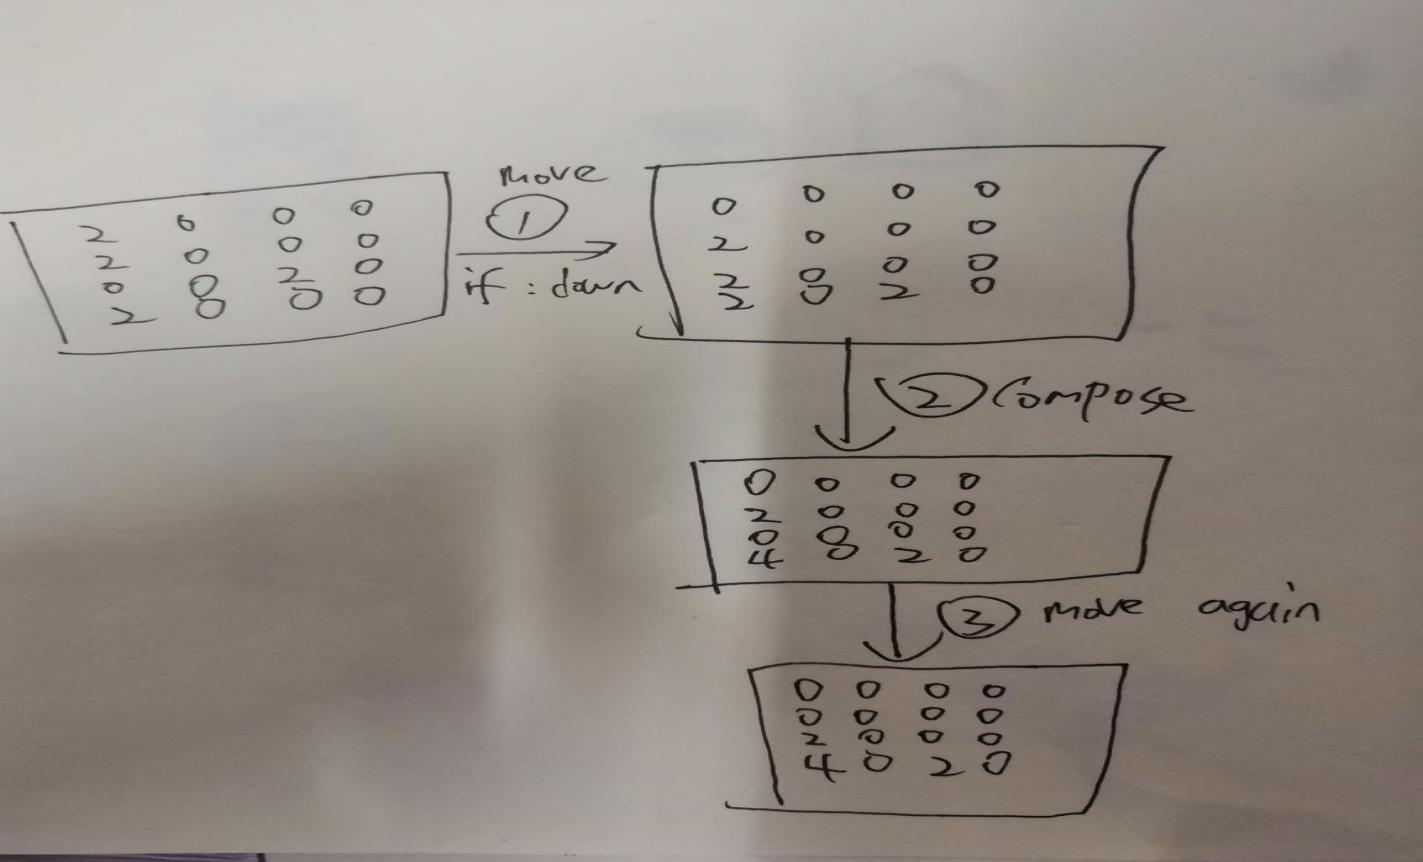 2 0 0 0
2 0 0 0
0 0 2 0
2 0 0 0
move
1
if : down
0 0 0 0
2 0 0 0
2 0 0 0
2 0 2 0
2 Compose
0 0 0 0
2 0 0 0
0 0 0 0
4 0 2 0
3 move again
0 0 0 0
0 0 0 0
2 0 0 0
4 0 2 0